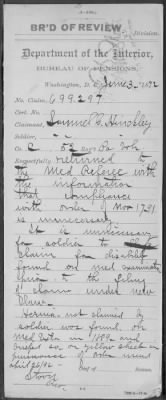 BR'D OF REVIEW
Division.
Department of the Interior,
BUREAU OF PENSIONS,
Washington, D.C. June 3, 1892
No. Claim, 699297
Cert. No.
Claimant, Samuel Hinckley
Soldier, " "
Co. 52 Reg't Vols
Respectfully returned to
the Med Referee with
the information
that compliance
with order of Nov 17, 91
is unnecessary.
It is unnecessary
for soldier to
claim for disability
found on med examination
prior to the filing
of claim under new
law
Hernia not claimed by
soldier was found on
med exam in 1889 and
on yellow sheet in
pursuance of order issued
April 26/92